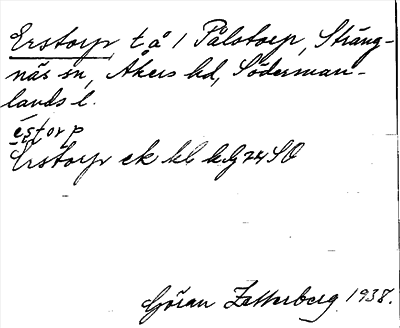 Erstorp, t å 1 Pålstorp, Sträng-
näs sn, Åkers hd, Söderman-
lands l.
èstorp
Erstorp ek kb hg 24 SO
Göran Zetterberg 1938.